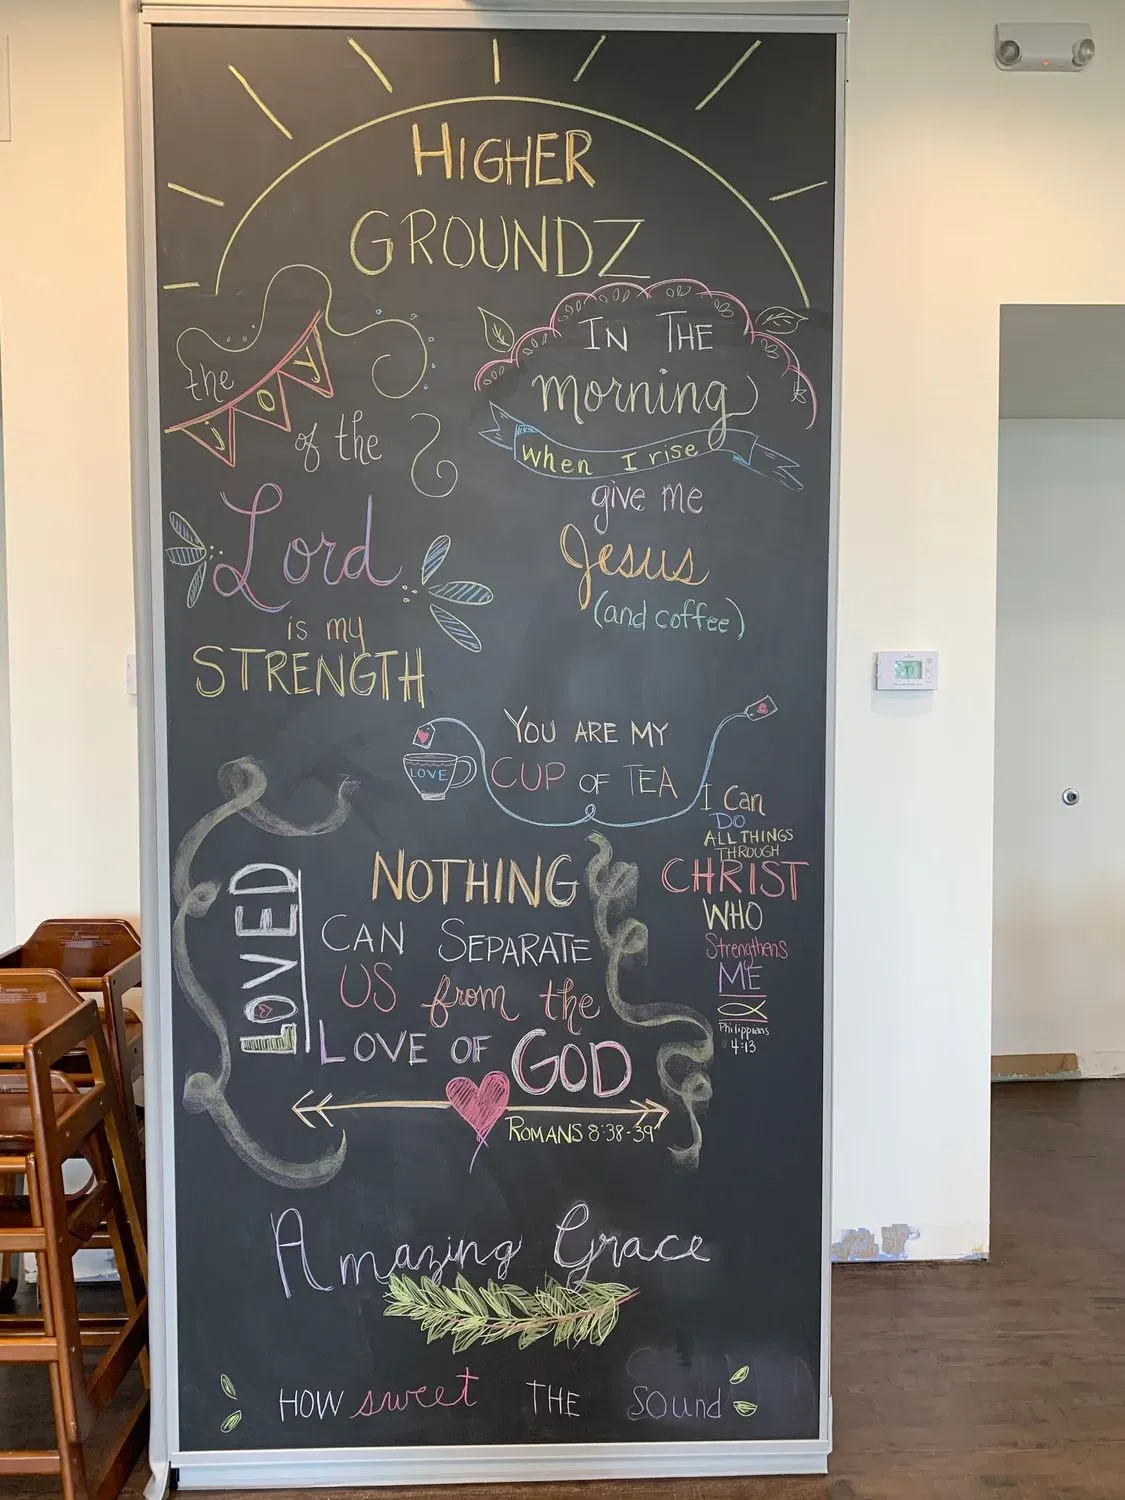 HIGHER
GROUNDZ
the
joy
of the
Lord
is my
STRENGTH
IN THE
morning
when I rise
give me
Jesus
(and coffee)
LOVE
YOU ARE MY
CUP OF TEA
I Can
DO
ALL THINGS
THROUGH
CHRIST
WHO
Strengthens
ME
Philippians
4:13
LOVED
NOTHING
CAN SEPARATE
US from the
LOVE OF GOD
ROMANS 8:38-39
Amazing Grace
HOW sweet THE sound